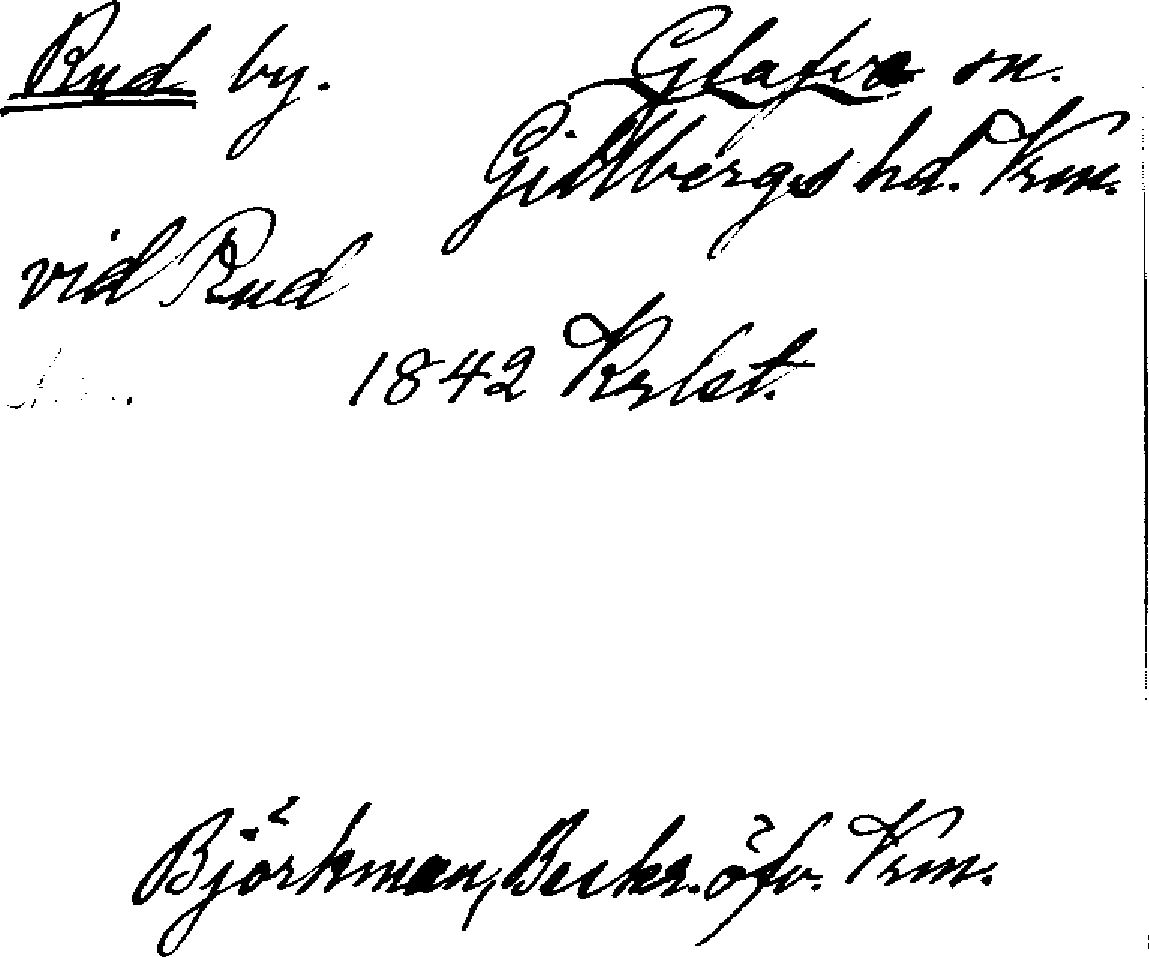 Rud by. Glafva sn.
Gillbergs hd. Vrm.
vid Rud
1842 Krlst.
Björkman, Beskr. öfv. Vrm.